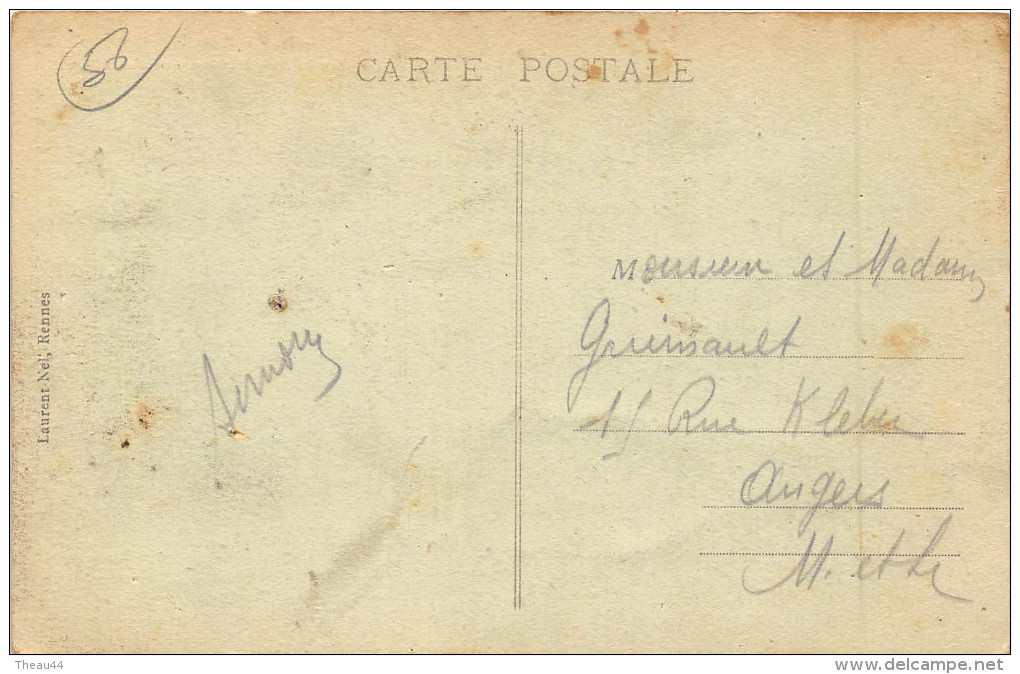 56
CARTE POSTALE
Laurent-Nel, Rennes
Monsieur et Madame
Grimault
15 Rue Kleber
Angers
M. et L.
Theau44
www.delcampe.net